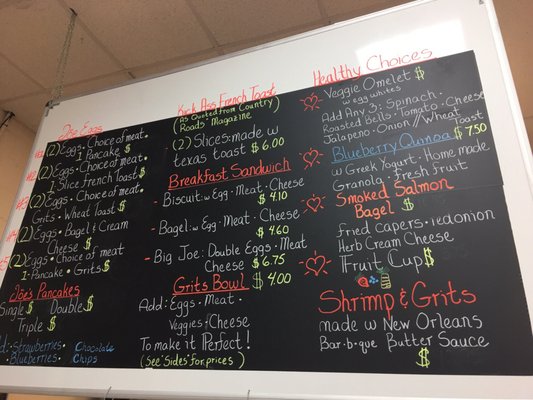 Joe Eggs
#1 (2) Eggs · Choice of meat ·
1 Pancake $
#2 (2) Eggs · Choice of meat ·
1 Slice french Toast $
#3 (2) Eggs · Choice of meat ·
Grits · Wheat Toast $
#4 (2) Eggs · Bagel & Cream
Cheese $
#5 (2) Eggs · Choice of meat
1 · Pancake · Grits $
Joe's Pancakes
Single $ Double $
Triple $
Strawberries · Chocolate
· Blueberries · Chips
Kick Ass French Toast
(As Quoted from Country
Roads · Magazine
· (2) Slices: made w
texas toast $ 6.00
Breakfast Sandwich
- Biscuit: w Egg · Meat · Cheese
$ 4.10
- Bagel: w Egg · Meat · Cheese
$ 4.60
- Big Joe: Double Eggs · Meat
Cheese $ 6.75
Grits Bowl $ 4.00
Add: Eggs · Meat ·
Veggies & Cheese
To make it Perfect!
(See 'Sides' for prices)
Healthy Choices
Veggie Omelet $
w egg whites
Add Any 3: Spinach ·
Roasted Bells · Tomato · Cheese
Jalapeno · Onion / Wheat Toast
Blueberry Quinoa $ 7.50
w Greek Yogurt · Home made
Granola · Fresh Fruit
Smoked Salmon
Bagel $
fried capers · red onion
Herb Cream Cheese
Fruit Cup $
Shrimp & Grits
made w New Orleans
Bar·b·que Butter Sauce
$